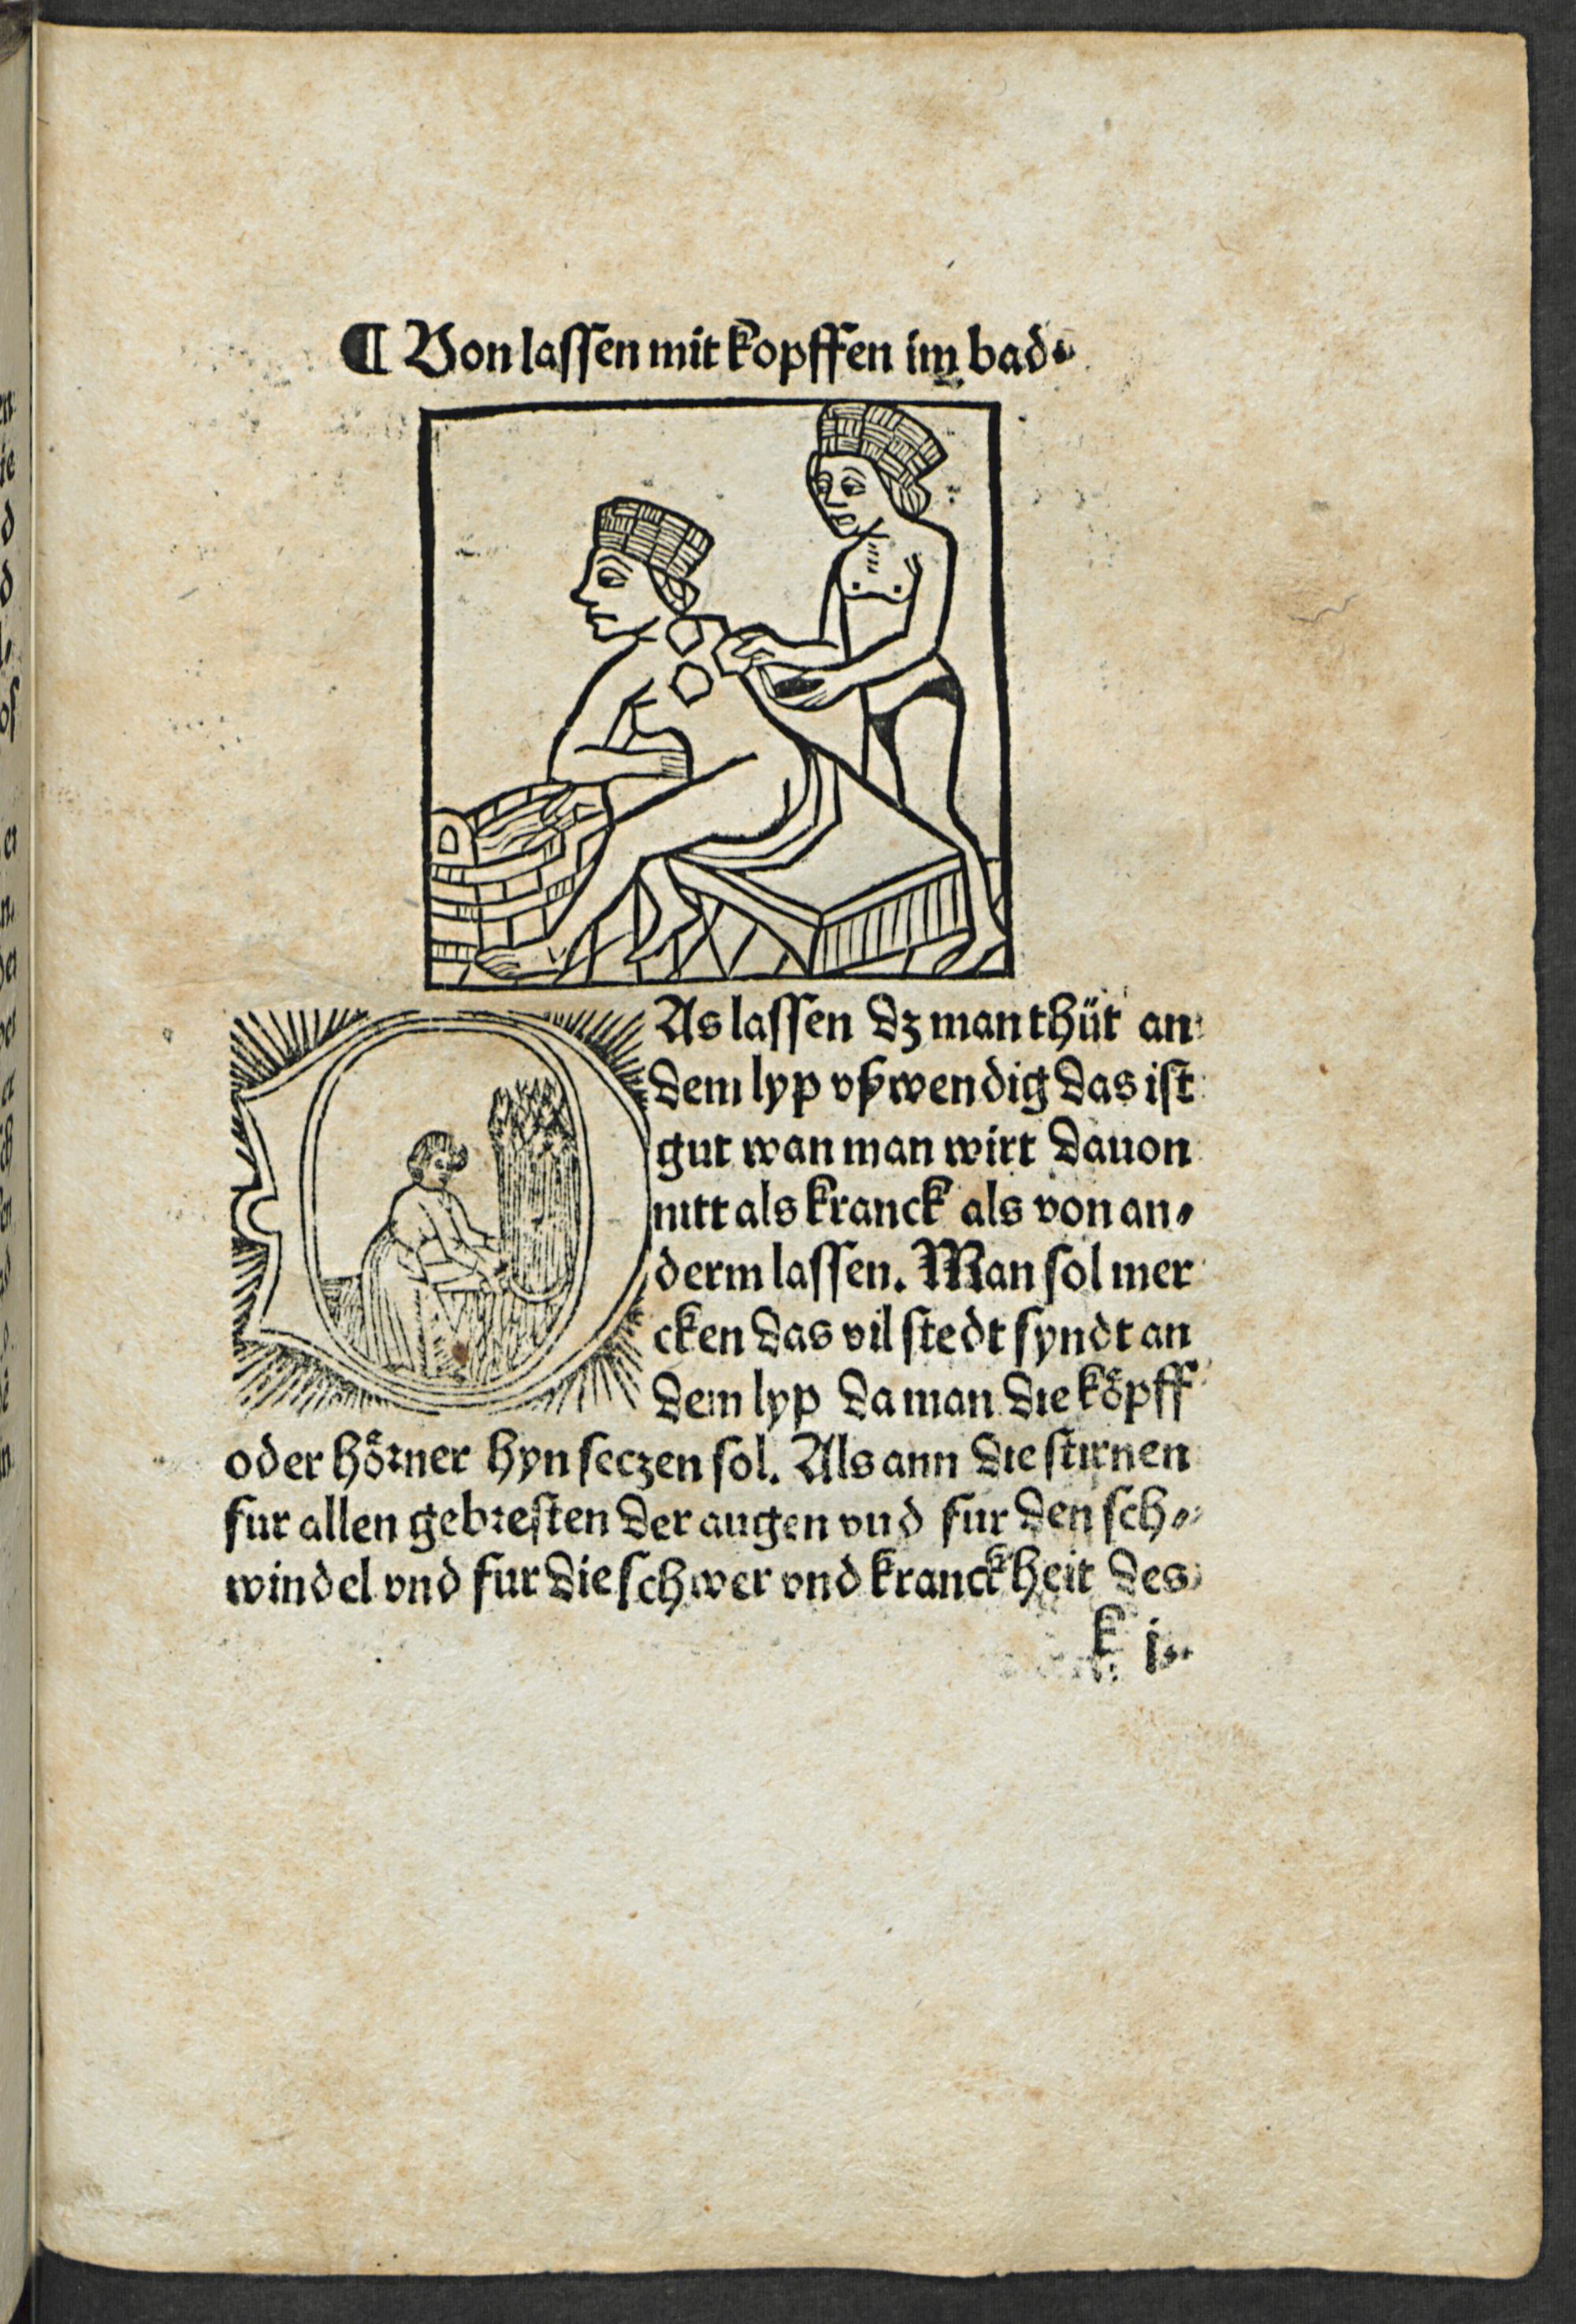 ¶ Von lassen mit kopffen im bad.
DAs lassen dz man thüt an
dem lyp vßwendig das ist
gut wan man wirt dauon
nitt als kranck als von an⸗
derm lassen. Man sol mer
cken das vil stedt syndt an
dem lyp da man die köpff
oder hörner hyn seczen sol. Als ann die stirnen
fur allen gebresten der augen vnd fur den sch⸗
windel vnd fur die schwer vnd kranckheit des
k i.